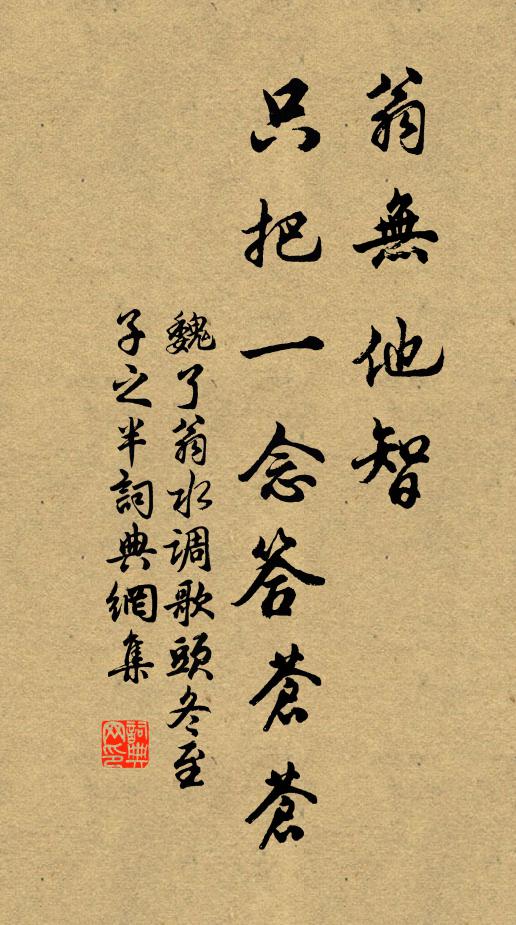 翁無他智
只把一念答蒼蒼
魏了翁水调歌頭冬至
子之半詞典網集
詞典
网印